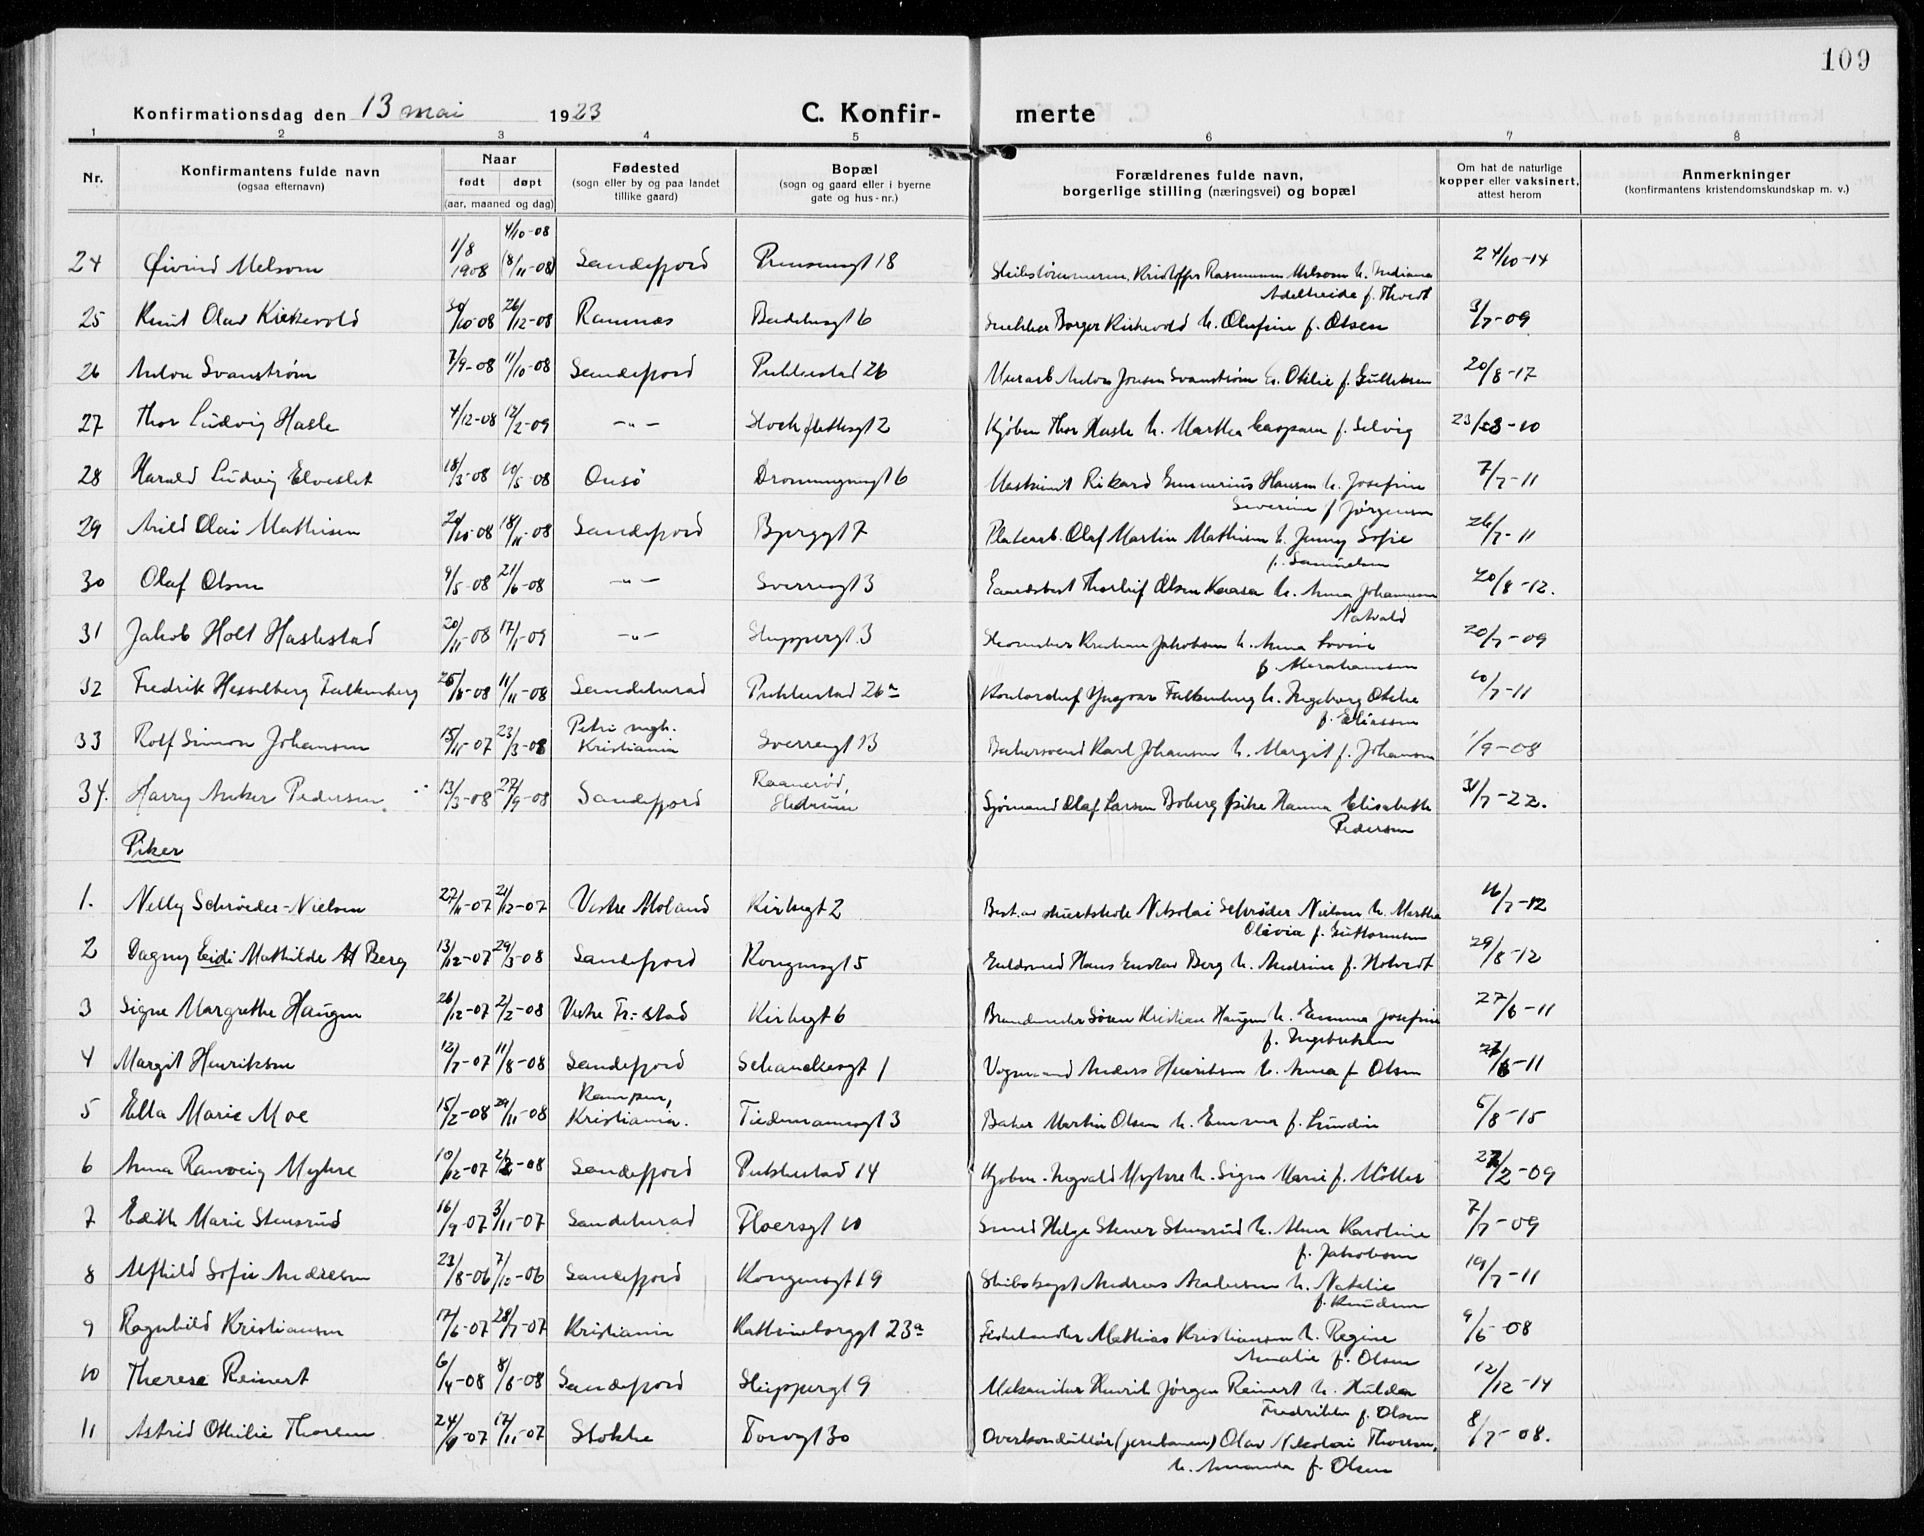 109
Konfirmationsdag den 13 mai 1923 C. Konfir- merte
1 2 3 4 5 6 7 8
Nr. Konfirmantens fulde navn (ogsaa efternavn) Naar født døpt (aar, maaned og dag) Fødested (sogn eller by og paa landet tillike gaard) Bopæl (sogn og gaard eller i byerne gate og hus-nr.) Forældrenes fulde navn, borgerlige stilling (næringsvei) og bopæl Om hat de naturlige kopper eller vaksinert, attest herom Anmerkninger (konfirmantens kristendomskundskap m. v.)
4/10-08
24 Øivind Melsom 1/8 1908 (8/11-08) Sandefjord Prinsensgt 18 Kristoffer Rasmussen Melsom h. Indiana 24/10-14
Adelheide f. Thvedt
25 Knut Olav Kirkevold 30/10-08 26/12-08 Ramnes 6 Snekker Borger Kirkevold h. Olufine f. Olsen 3/7-09
26 Anton Svanstrøm 7/9-08 11/10-08 Sandefjord Pukkestad 26 Murarb. Anton Jonsen Svanstrøm h. Otilie f. Gulliksen 20/8-17
27 Thor Ludvig Hasle 4/12-08 12/2-09 -"- 2 Kjøbm Thor Hasle h. Martha f. Selvig 23/ -10
28 Harald Ludvig Elveslet 18/3-08 10/5-08 Onsø Dronningensgt 6 Maskinist Rikard Gunnerius Hansen h. Josefine 7/7-11
Severine f Jørgensen
29 Arild Olai Mathisen 20/10-08 18/11-08 Sandefjord Bjerggt 7 Platearb. Olaf Martin Mathisen h. Jenny Sofie 26/7-11
f. Samuelsen
30 Olaf Olsen 9/5-08 21/6-08 -"- Sverresgt 3 Gaardsbest Thorleif Olsen Kaasa h. Anna Johannesen 20/8-12.
31 Jakob Holt Haslestad 20/11-08 17/1-09 -"- Skippergt. 3 Skomaker Kristian Jakobsen h. Anna Lovise 20/7-09
f. Abrahamsen
32 Fredrik Hesselberg Falkenberg 25/8-08 11/11-08 Sandeherad Pukkestad 26a Kontorchef Yngvar Falkenberg h. Ingeborg Otilie 10/7-11
f. Eliassen
Petri mgh.
33 Rolf Simon Johansen 15/11-07 23/3-08 Kristiania Sverresgt 13 Bakersvend Karl Johansen h. Margit f. Johansen 1/9-08
Raanerød,
34. Harry Anker Pedersen 13/3-08 27/9-08 Sandefjord Hedrum Sjømand Olaf Larsen Boberg pike Hanna Elisabeth 31/7-22.
Pedersen
Piker
1. Nelly Schrøder-Nielsen 27/11-07 21/12-07 Vestre Moland Kirkegt 2 Nikolai Schrøder Nielsen h. Martha 16/7-12
Olivia f. Guttormsen
2 Dagny Eidi Mathilde Berg 13/12-07 29/3-08 Sandefjord Kongensgt 5 Guldsmed Hans Gustav Berg h. Andrine f. Holvedt 29/8-12
3 Signe Margrethe Haugen 26/12-07 2/2-08 Vestre Fr:-stad Kirkegt 6 Brandmester Søren Kristian Haugen h. Emma Josefine 27/6-11
f. Ingebriktsen
4 Margit Henriksen 12/7-07 11/8-08 Sandefjord Schanchesgt 1 Vognmand Anders Henriksen h. Anna f. Olsen -11
Kampen,
5 Ella Marie Moe 15/2-08 29/11-08 Kristiania. Tidemannsgt 3 Baker Martin Olsen h. Emma f. Lundin 5/8-15
6 Anna Ranveig Myhre 10/12-07 2/2-08 Sandefjord Pukkestad 14 Kjøbm. Ingvald Myhre h. Signe Marie f. Möller 27/2-09
7 Edith Marie Stensrud 16/9-07 3/11-07 Sandeherad Floersgt 10 Smed Helge Stener Stensrud h. Anna Karoline 7/7-09
f. Jakobsen
8 Alfhild Sofie Andresen 23/8-06 7/12-06 Sandefjord Kongensgt 19 Skibskapt Andreas Andersen h. Natalie 19/7-11
f. Knudsen
9 Ragnhild Kristiansen 17/6-07 28/7-07 Kristiania Kathrineborggt 23a Fiskehandler Mathias Kristiansen h. Regine 9/6-08
Amalie f. Olsen
10 Therese Reinert 6/4-08 8/6-08 Sandefjord Skippergt 9 Mekaniker Henrik Jørgen Reinert h. Hulda 12/12-14
Fredrikke f. Olsen
11 Astrid Othilie Thoresen 24/9-07 17/11-07 Stokke Torvgt 30 Overkonduktør (jernbanen) Olav Nikolai Thoresen, 8/7-08.
h. Amanda f. Olsen